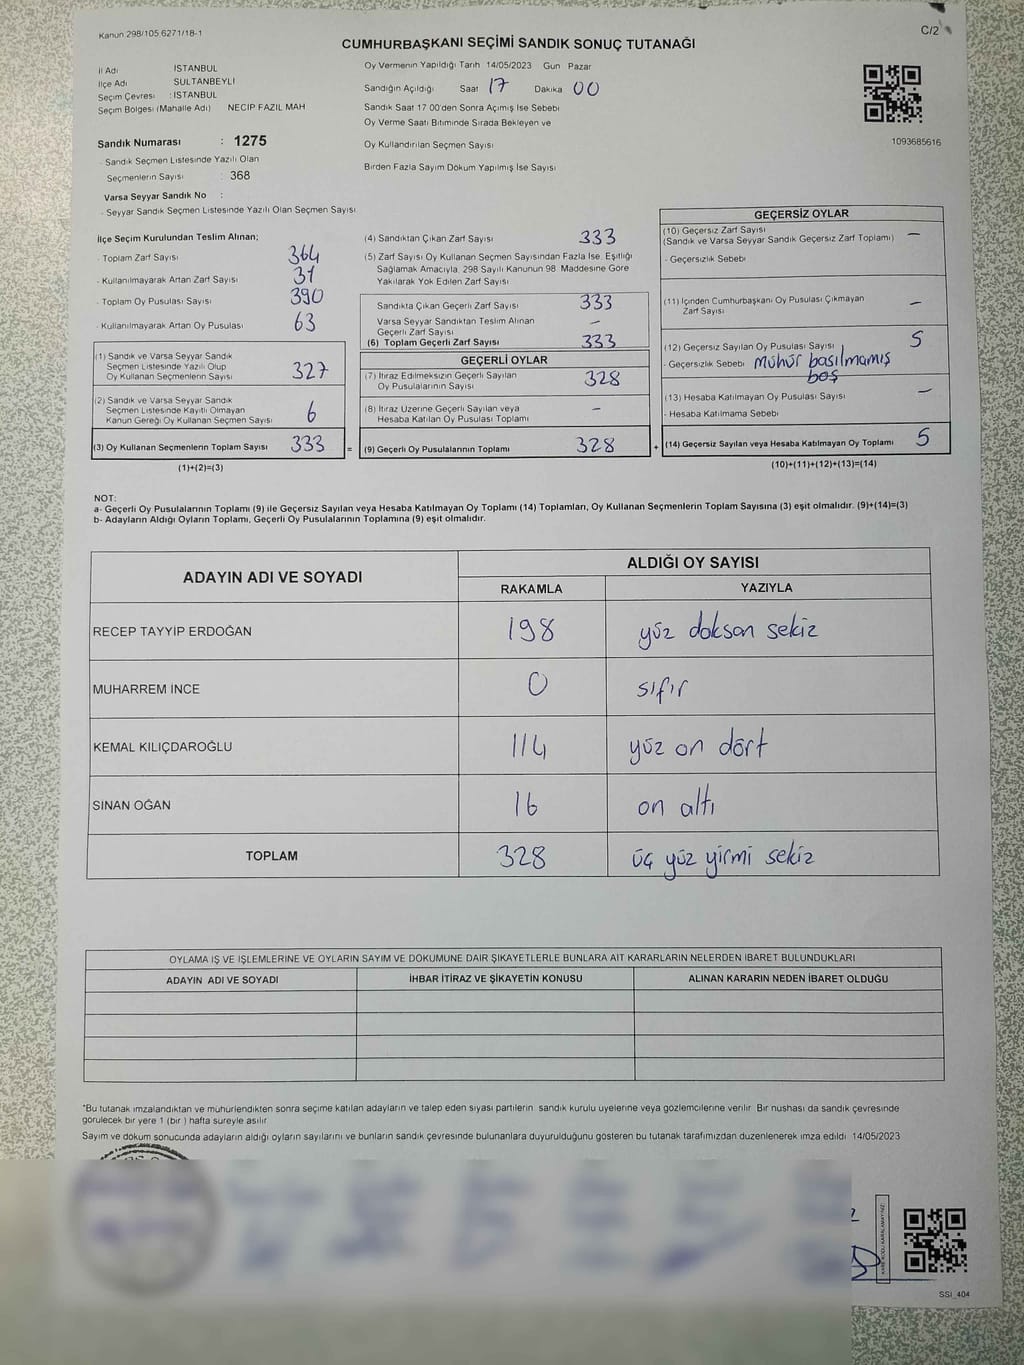 Kanun 298/105,6271/18-1
C/2
CUMHURBAŞKANI SEÇİMİ SANDIK SONUÇ TUTANAĞI
İl Adı İSTANBUL
İlçe Adı SULTANBEYLİ
Seçim Çevresi : İSTANBUL
Seçim Bölgesi (Mahalle Adı) NECİP FAZIL MAH
Sandık Numarası : 1275
- Sandık Seçmen Listesinde Yazılı Olan
Seçmenlerin Sayısı : 368
Varsa Seyyar Sandık No :
- Seyyar Sandık Seçmen Listesinde Yazılı Olan Seçmen Sayısı
Oy Vermenin Yapıldığı Tarih 14/05/2023 Gün Pazar
Sandığın Açıldığı Saat 17 Dakika 00
Sandık Saat 17 00'den Sonra Açımış İse Sebebi
Oy Verme Saati Bitiminde Sırada Bekleyen ve
Oy Kullandırılan Seçmen Sayısı
Birden Fazla Sayım Döküm Yapılmış İse Sayısı
1093685616
İlçe Seçim Kurulundan Teslim Alınan;
- Toplam Zarf Sayısı 364
- Kullanılmayarak Artan Zarf Sayısı 31
- Toplam Oy Pusulası Sayısı 390
- Kullanılmayarak Artan Oy Pusulası 63
(1) Sandık ve Varsa Seyyar Sandık
Seçmen Listesinde Yazılı Olup
Oy Kullanan Seçmenlerin Sayısı 327
(2) Sandık ve Varsa Seyyar Sandık
Seçmen Listesinde Kayıtlı Olmayan
Kanun Gereği Oy Kullanan Seçmen Sayısı 6
(3) Oy Kullanan Seçmenlerin Toplam Sayısı 333 =
(1)+(2)=(3)
(4) Sandıktan Çıkan Zarf Sayısı 333
(5) Zarf Sayısı Oy Kullanan Seçmen Sayısından Fazla İse, Eşitliği
Sağlamak Amacıyla, 298 Sayılı Kanunun 98. Maddesine Göre
Yakılarak Yok Edilen Zarf Sayısı
Sandıkta Çıkan Geçerli Zarf Sayısı 333
Varsa Seyyar Sandıktan Teslim Alınan
Geçerli Zarf Sayısı –
(6) Toplam Geçerli Zarf Sayısı 333
GEÇERLİ OYLAR
(7) İtiraz Edilmeksizin Geçerli Sayılan
Oy Pusulalarının Sayısı 328
(8) İtiraz Üzerine Geçerli Sayılan veya
Hesaba Katılan Oy Pusulası Toplamı –
(9) Geçerli Oy Pusulalarının Toplamı 328 +
GEÇERSİZ OYLAR
(10) Geçersiz Zarf Sayısı –
(Sandık ve Varsa Seyyar Sandık Geçersiz Zarf Toplamı)
- Geçersizlik Sebebi
(11) İçinden Cumhurbaşkanı Oy Pusulası Çıkmayan
Zarf Sayısı –
(12) Geçersiz Sayılan Oy Pusulası Sayısı 5
- Geçersizlik Sebebi mühür basılmamış
boş
(13) Hesaba Katılmayan Oy Pusulası Sayısı –
- Hesaba Katılmama Sebebi
(14) Geçersiz Sayılan veya Hesaba Katılmayan Oy Toplamı 5
(10)+(11)+(12)+(13)=(14)
NOT:
a- Geçerli Oy Pusulalarının Toplamı (9) ile Geçersiz Sayılan veya Hesaba Katılmayan Oy Toplamı (14) Toplamları, Oy Kullanan Seçmenlerin Toplam Sayısına (3) eşit olmalıdır. (9)+(14)=(3)
b- Adayların Aldığı Oyların Toplamı, Geçerli Oy Pusulalarının Toplamına (9) eşit olmalıdır.
ADAYIN ADI VE SOYADI
ALDIĞI OY SAYISI
RAKAMLA YAZIYLA
RECEP TAYYİP ERDOĞAN 198 yüz doksan sekiz
MUHARREM İNCE 0 sıfır
KEMAL KILIÇDAROĞLU 114 yüz on dört
SİNAN OĞAN 16 on altı
TOPLAM 328 üç yüz yirmi sekiz
OYLAMA İŞ VE İŞLEMLERİNE VE OYLARIN SAYIM VE DÖKÜMÜNE DAİR ŞİKAYETLERLE BUNLARA AİT KARARLARIN NELERDEN İBARET BULUNDUKLARI
ADAYIN ADI VE SOYADI İHBAR İTİRAZ VE ŞİKAYETİN KONUSU ALINAN KARARIN NEDEN İBARET OLDUĞU
*Bu tutanak imzalandıktan ve mühürlendikten sonra seçime katılan adayların ve talep eden siyasi partilerin sandık kurulu üyelerine veya gözlemcilerine verilir. Bir nüshası da sandık çevresinde
görülecek bir yere 1 (bir) hafta süreyle asılır
Sayım ve döküm sonucunda adayların aldığı oyların sayılarını ve bunların sandık çevresinde bulunanlara duyurulduğunu gösteren bu tutanak tarafımızdan düzenlenerek imza edildi 14/05/2023
SSİ_404